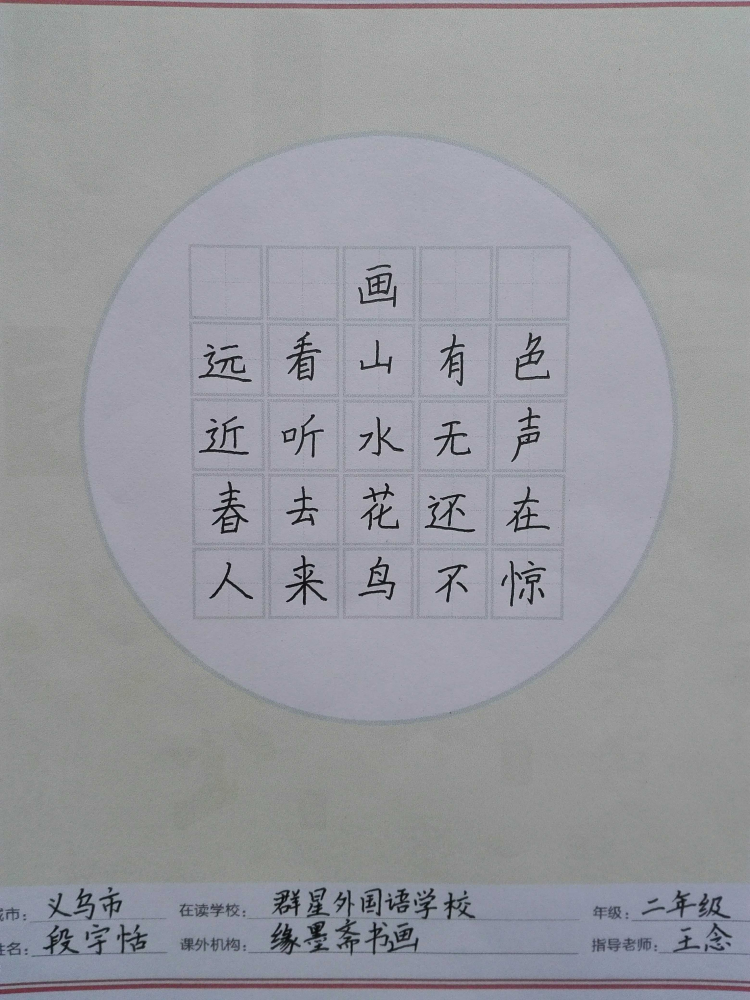 画
远看山有色
近听水无声
春去花还在
人来鸟不惊
城市： 义乌市 在读学校： 群星外国语学校 年级： 二年级
姓名： 段宇恬 课外机构： 缘墨斋书画 指导老师： 王念